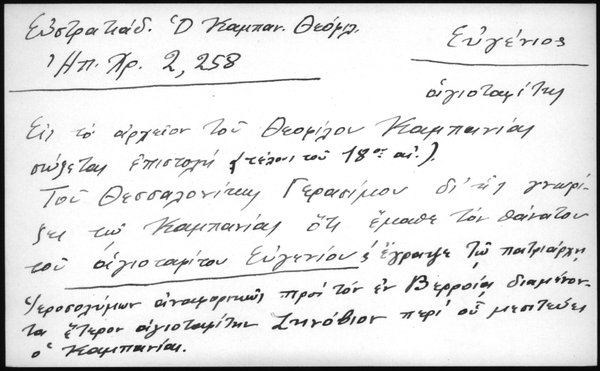 Εὐστρατιάδ. Ὁ Καμπαν. Θεόφιλ.
Ἠπ. Χρ. 2, 258
Εὐγένιος
ἁγιοταφίτης
Εἰς τὸ ἀρχεῖον τοῦ Θεοφίλου Καμπανίας
σώζεται ἐπιστολὴ (τέλους τοῦ 18ου αἰ.).
Τοῦ Θεσσαλονίκης Γερασίμου δι' ἧς γνωρί-
ζει τῷ Καμπανίας ὅτι ἔμαθε τὸν θάνατον
τοῦ ἁγιοταφίτου Εὐγενίου & ἔγραψε τῷ πατριάρχῃ
Ἱεροσολύμων ἀναφορικῶς πρὸς τὸν ἐν Βερροίᾳ διαμένον-
τα ἕτερον ἁγιοταφίτην Ζηνόβιον περὶ οὗ μεσιτεύει
ὁ Καμπανίας.